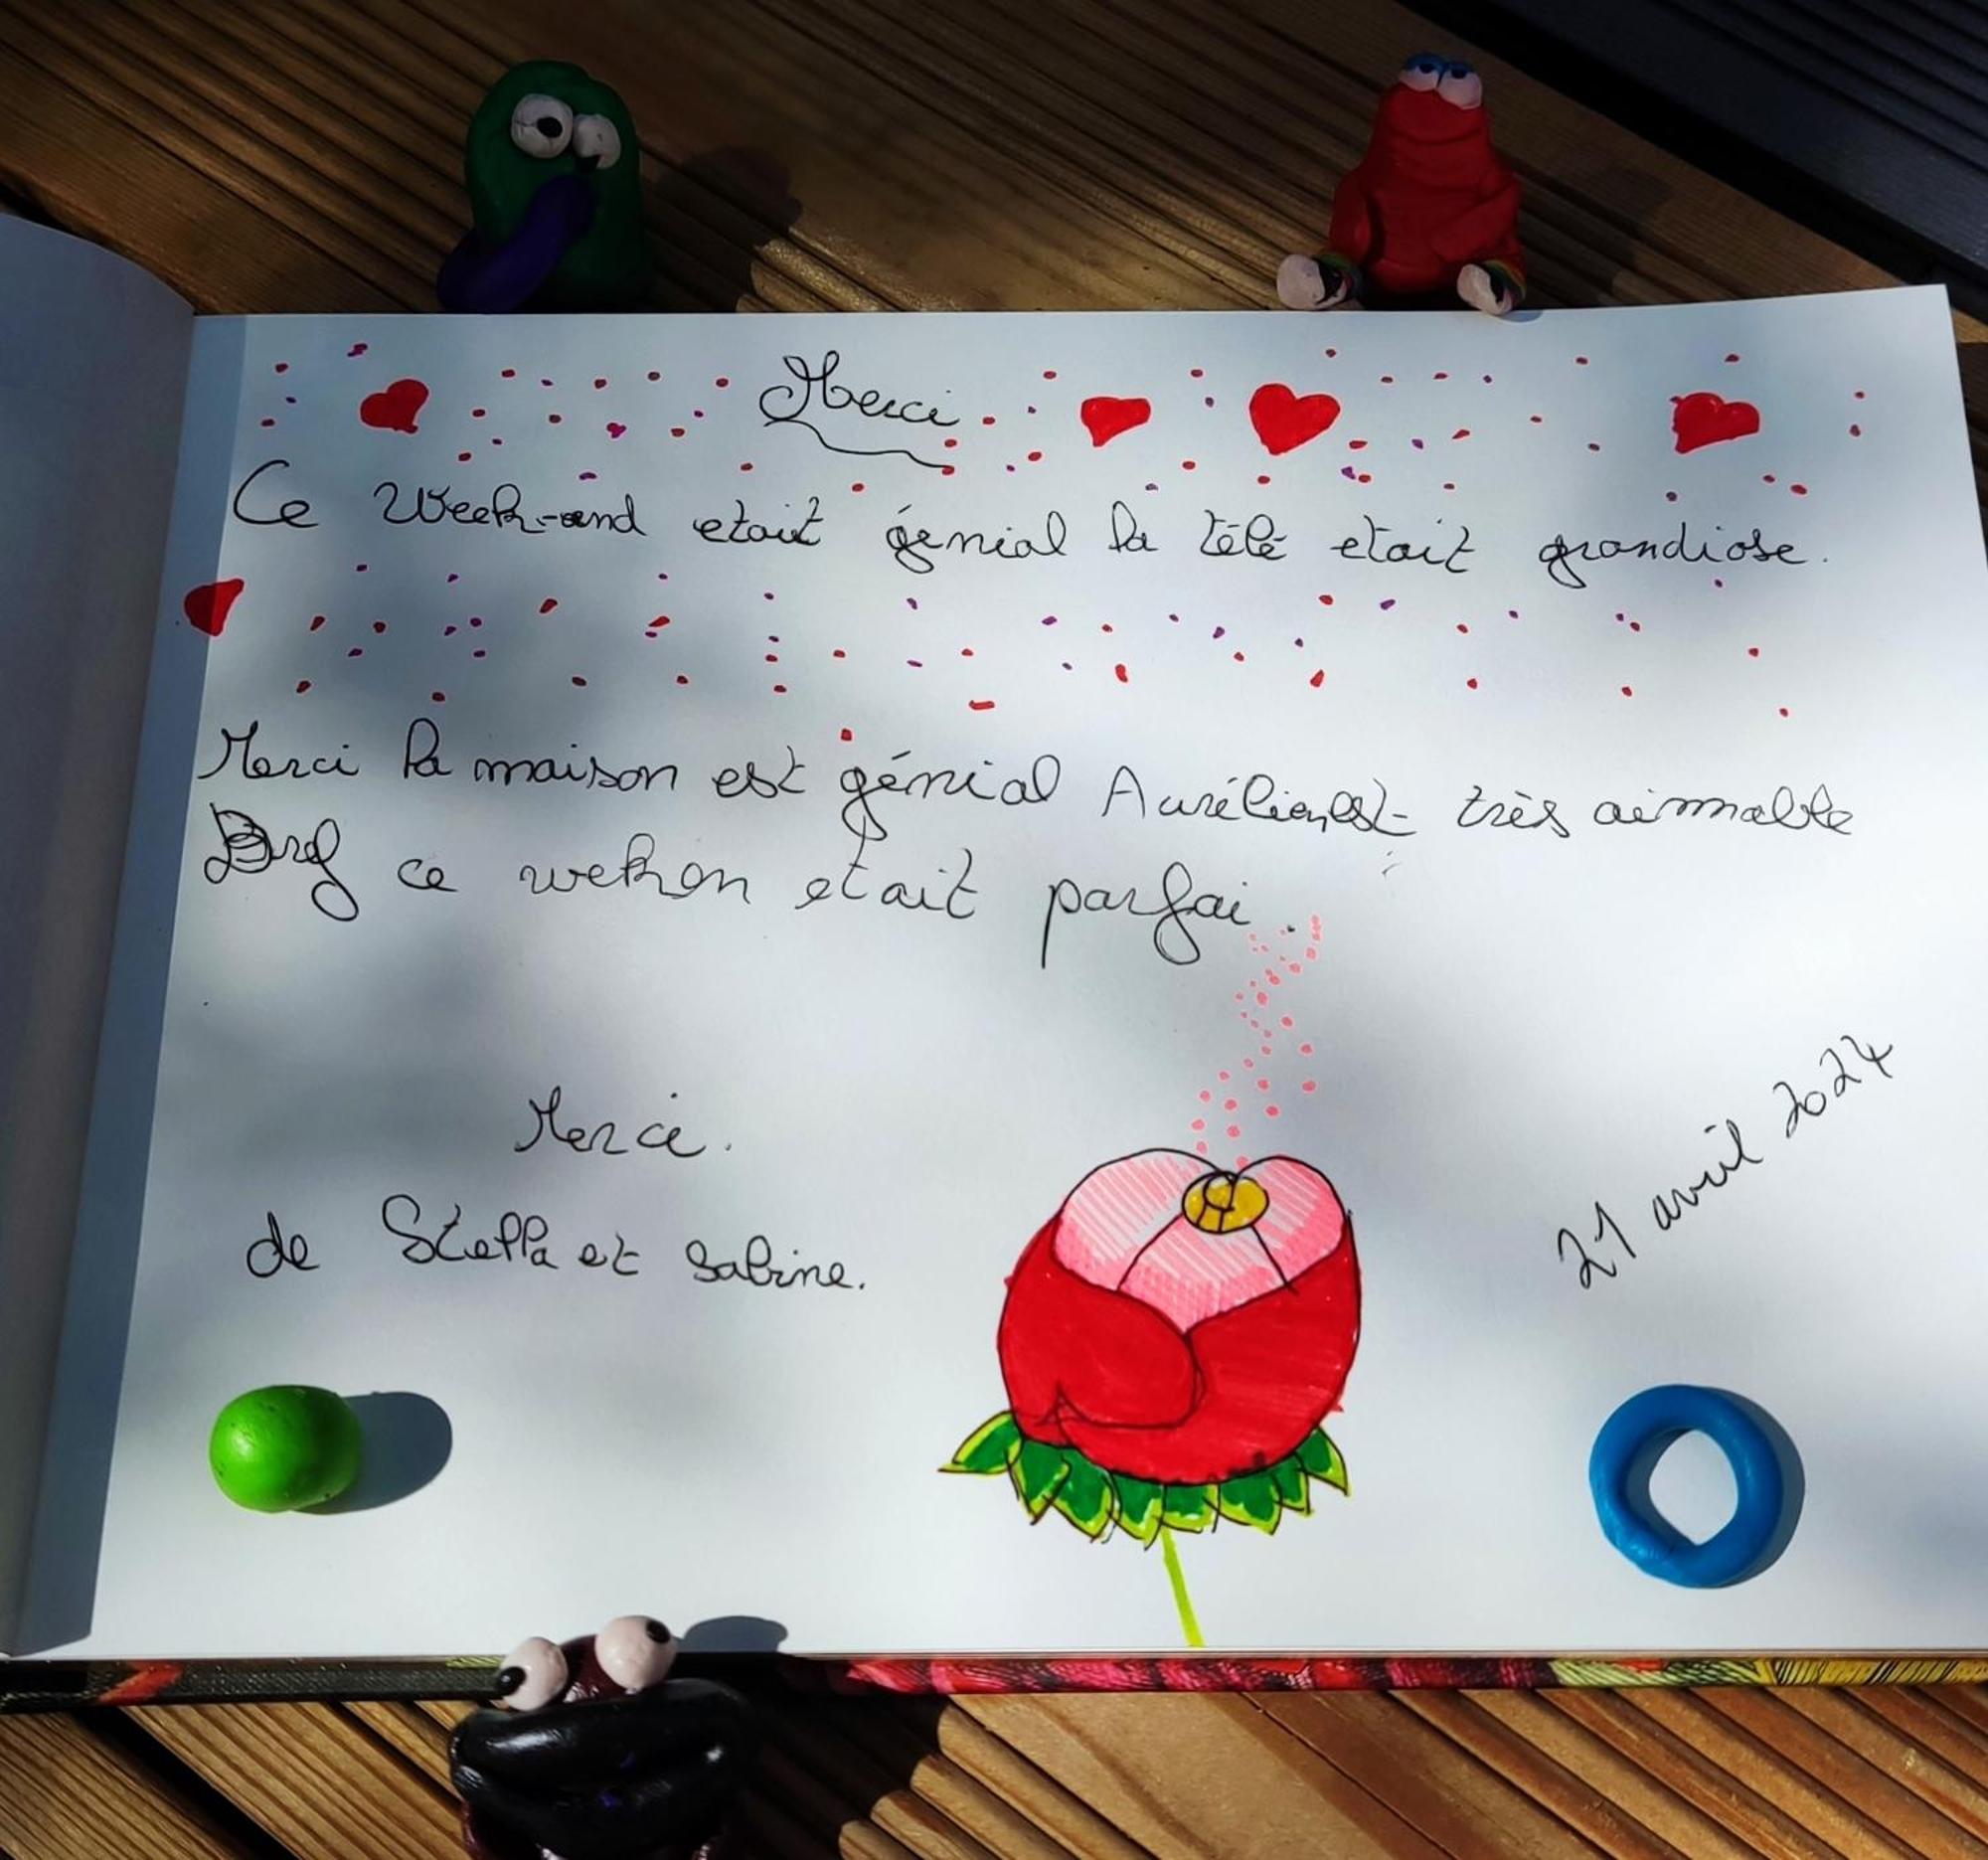 Merci
Ce Week-end etait génial la télé etait grandiose.
Merci la maison est génial Aurélien est très aimmable
Bref ce weken etait parfai.
Merci.
de Stella et Sabine.
21 avril 2024